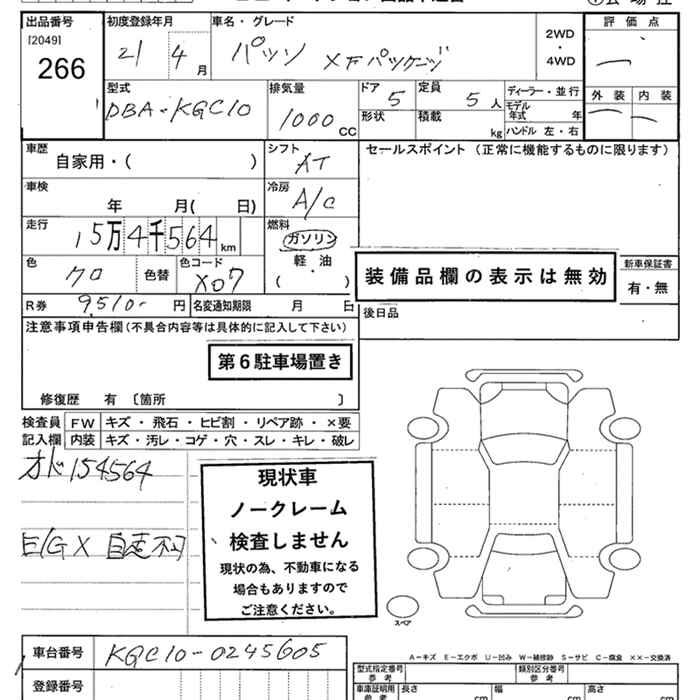 出品番号 初度登録年月 車名・グレード 2WD ・ 4WD 評価点
[2049]
266
21 4月 パッソ XFパッケージ 一
型式 排気量 ドア 5 定員 5人 ディーラー・並行 外装 内装
DBA-KGC10 1000cc 形状 積載 kg モデル年式 年 一 一
ハンドル 左・右
車歴 自家用・( ) シフト AT セールスポイント(正常に機能するものに限ります)
車検 年 月( 日) 冷房 A/C
走行 15万4千564km 燃料 ガソリン
軽・油
( )
色 クロ 色替 色コード X07
装備品欄の表示は無効
新車保証書
有・無
R券 9,510- 円 名変通知期限 月 日 後日品
注意事項申告欄(不具合内容等は具体的に記入して下さい)
第6駐車場置き
修復歴 有 〔箇所 〕
検査員 FW キズ・飛石・ヒビ割・リペア跡・×要
記入欄 内装 キズ・汚レ・コゲ・穴・スレ・キレ・破レ
オド154564
E/G X 自走不可
現状車
ノークレーム
検査しません
現状の為、不動車になる
場合もありますので
ご注意ください。
スペア
車台番号 KGC10-0245605
登録番号
A-キズ E-エクボ U-凹み W-補修跡 S-サビ C-腐食 ××-交換済
型式指定番号 参考 類別区分番号 参考
車庫証明用 参考 長さ cm 幅 cm 高さ cm